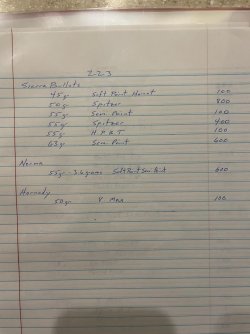 223
Sierra Bullets
45gr Soft Point Hornet 100
50gr Spitzer 800
55gr Semi Point 100
55gr Spitzer 400
55gr H.P.B.T 100
63gr Semi Point 600
Norma
55gr - 3.6 grams Soft Point Semi 600
Hornady
50gr V Max 100